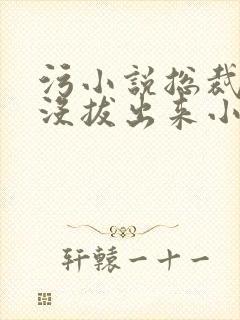 污小说总裁
没拔出来小
轩辕一十一